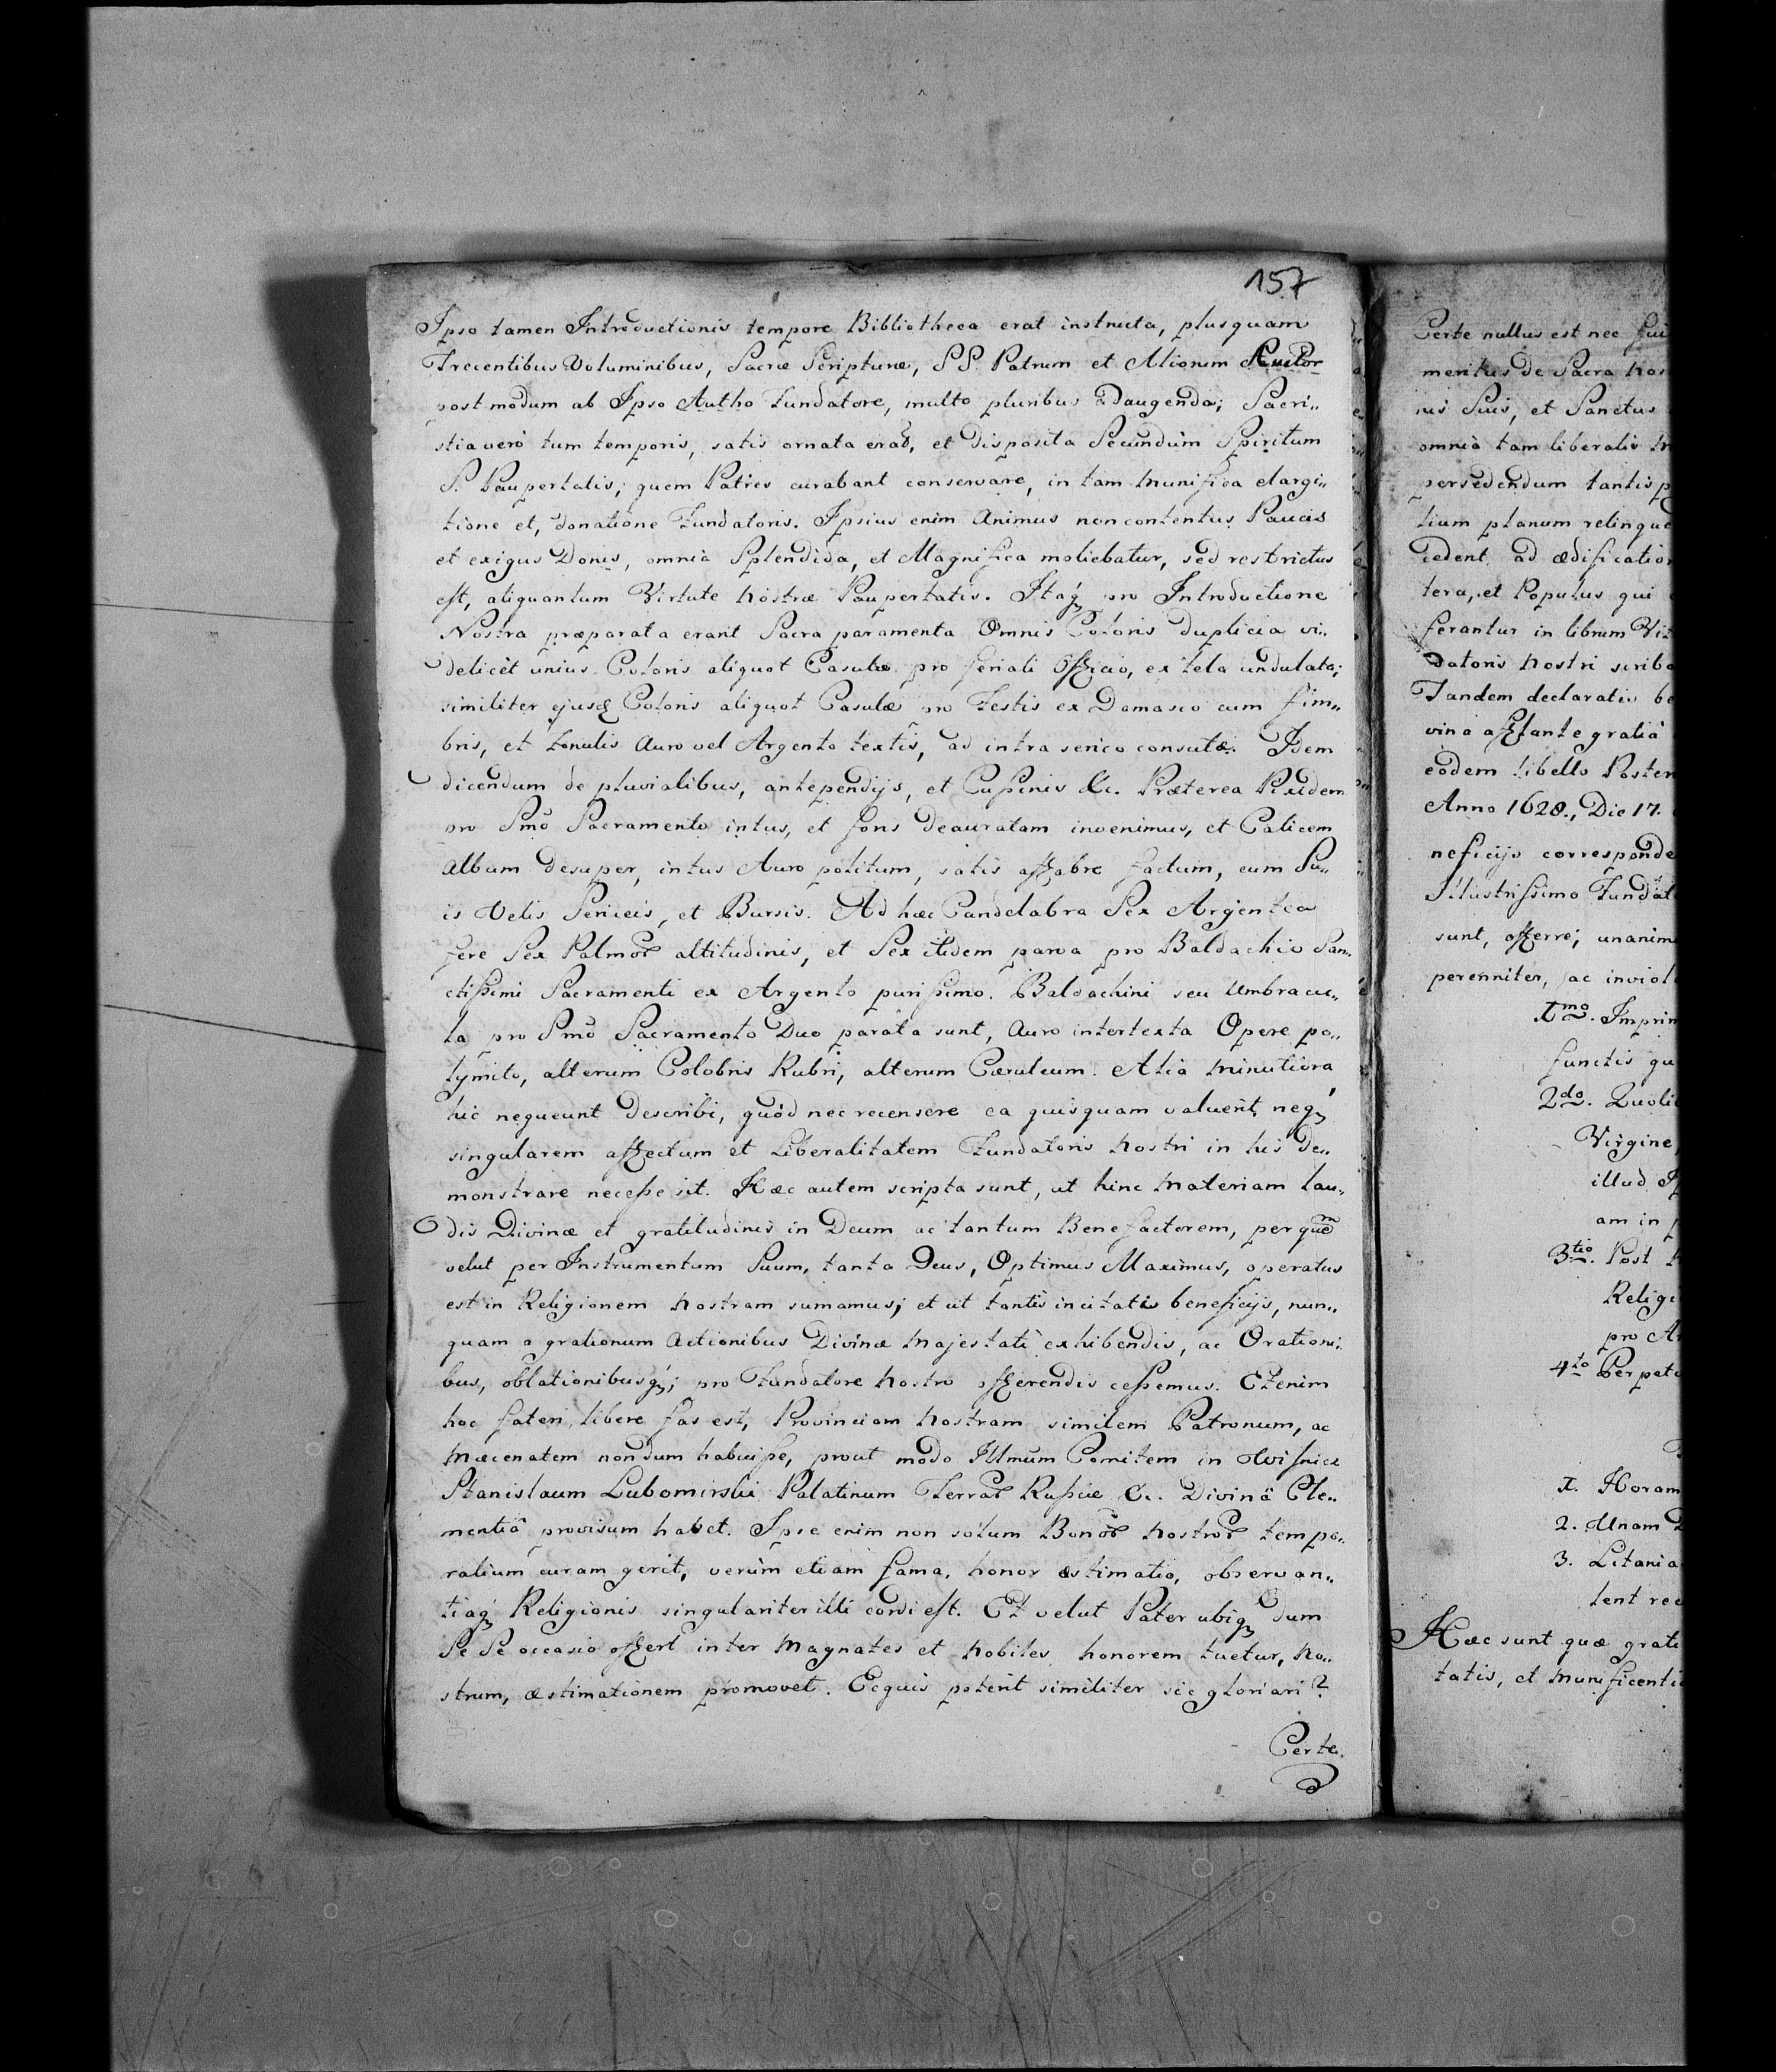 157
Ipso tamen Introductionis tempore Bibliotheca erat instructa, plusquam
Trecentibus Voluminibus, Sacræ Scripturæ, SS. Patrum et Aliorum
postmodum ab Ipso Autho Fundatore, multo pluribus adaugenda; Sacri„
stia verò tum temporis, satis ornata erat, et disposita Secundùm Spiritum
S. Paupertatis; quem Patres curabant conservare, in tam munifica elargi„
tione et, donatione Fundatoris. Ipsius enim Animus non contentus Paucis
et exigus Donis, omnia Splendida, et Magnifica moliebatur, sed restrictus
est, aliquantum Virtute nostræ Paupertatis. Itaq pro Introductione
Nostra præparata erant Sacra paramenta Omnis Coloris duplicia vi„
delicèt unius Coloris aliquot Casulæ pro feriali Officio, ex tela undulata;
similiter ejusd Coloris aliquot Casulæ pro Festis ex Damasco cum fim„
bris, et tonulis Auro vel Argento textis, ad intra serico consutæ. Idem
dicendum de pluvialibus, antependijs, et Cussinis &c. Præterea Pixidem
pro Smo Sacramento intus, et foris deauratam invenimus, et Calicem
album desuper, intus Auro politum, satis affabre factum, cum Su„
is Velis Sericeis, et Bursis. Ad hæc Candelabra Sex Argentea
fere Sex Palmor altitudinis, et Sex itidem parva pro Baldachio San„
ctissimi Sacramenti ex Argento purissimo. Baldachini seu Umbracu„
la pro Smo Sacramento Duo parata sunt, Auro intertexta Opere po„
lymito, alterum Colobris Rubri, alterum Cæruleum. Alia minutiora
hic nequeunt describi, quòd nec recensere ea quisquam valuerit, neq
singularem affectum et Liberalitatem Fundatoris nostri in his de„
monstrare necesse sit. Hæc autem scripta sunt, ut hinc materiam lau„
dis Divinæ et gratitudinis in Deum ac tantum Benefactorem, per quem
velut per Instrumentum Suum, tanta Deus, Optimus Maximus, operatus
est in Religionem nostram sumamus; et ut tantis incitatis beneficijs, nun„
quam a grationum actionibus Divinæ Majestati exhibendis, ac Orationi„
bus, oblationibusq; pro Fundatore nostro offerendis cessemus. Etenim
hoc fateri libere fas est, Provinciam nostram similem Patronum, ac
Mæcenatem nondum habuisse, prout modo Illmum Comitem in Wisnicz
Stanislaum Lubomirski Palatinum Terrar Russiæ &c. Divinâ Cle„
mentiâ provisum habet. Ipse enim non solum Bonor nostror tempo„
ralium curam gerit, verùm etiam fama, honor æstimatio, observan„
tiaq Religionis singulariter illi cordi est. Et velut Pater ubiq dum
Se Se occasio offert inter Magnates et nobiles honorem tuetur, no„
strum, æstimationem promovet. Ecquis poterit similiter sic gloriari?
Certe.
Certe nullus est nec fui
meritus de Sacra
Suis, et Sanctus
omnia tam liberalis
persedendum
tium planum relinque
cedent ad ædificatio
tera, et Populus qui
ferantur in librum
datoris nostri scribo
Tandem declaratis be
vina afflante gratiâ
eodem libello Poster
Anno 1628., Die 17.
neficijs corresponde
Illustrissimo Fundat
sunt, offerre; unanim
perenniter, ac inviol
1mo. Imprim
functis qu
2do. Quolib
Virgine
illud
am in
3tio. Post
Religi
pro
4to Perpetu
1. Horam
2. Unam
3. Litania
lent rec
Hæc sunt quæ grati
tatis, et munificenti